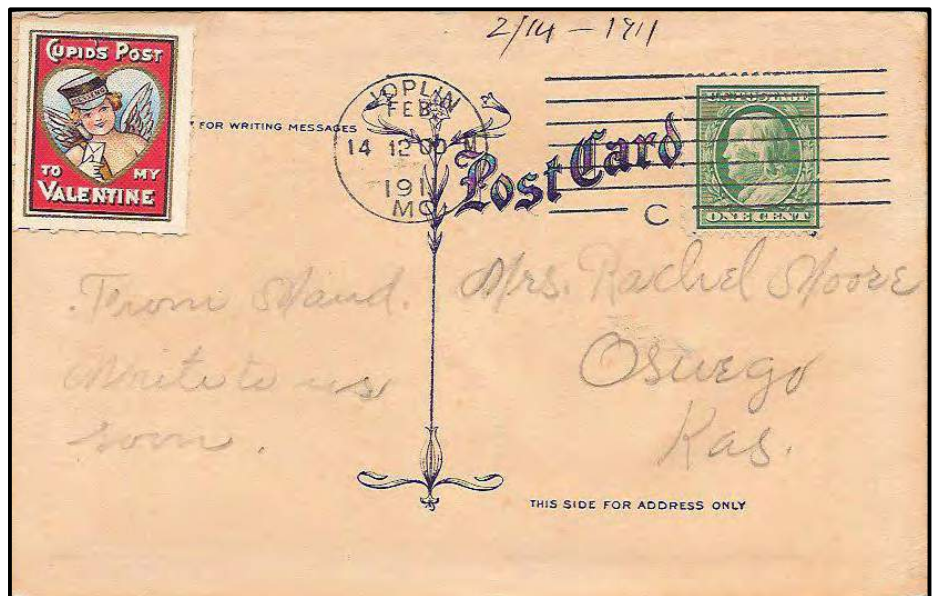 2/14 - 1911
CUPID'S POST
TO MY
VALENTINE
FOR WRITING MESSAGES
JOPLIN
FEB
14 12 00 M
191
MO.
C
Post Card
ONE CENT
From Maud.
Write to us
soon.
Mrs. Rachel Moore
Oswego
Kas.
THIS SIDE FOR ADDRESS ONLY